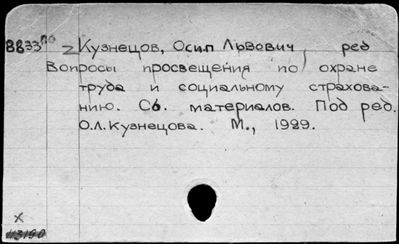 8833 Кузнецов, Осип Львович, ред
Вопросы просвещения по охране
труда и социальному страхова-
нию. Сб. материалов. Под ред.
О.Л. Кузнецова. М., 1929.
x